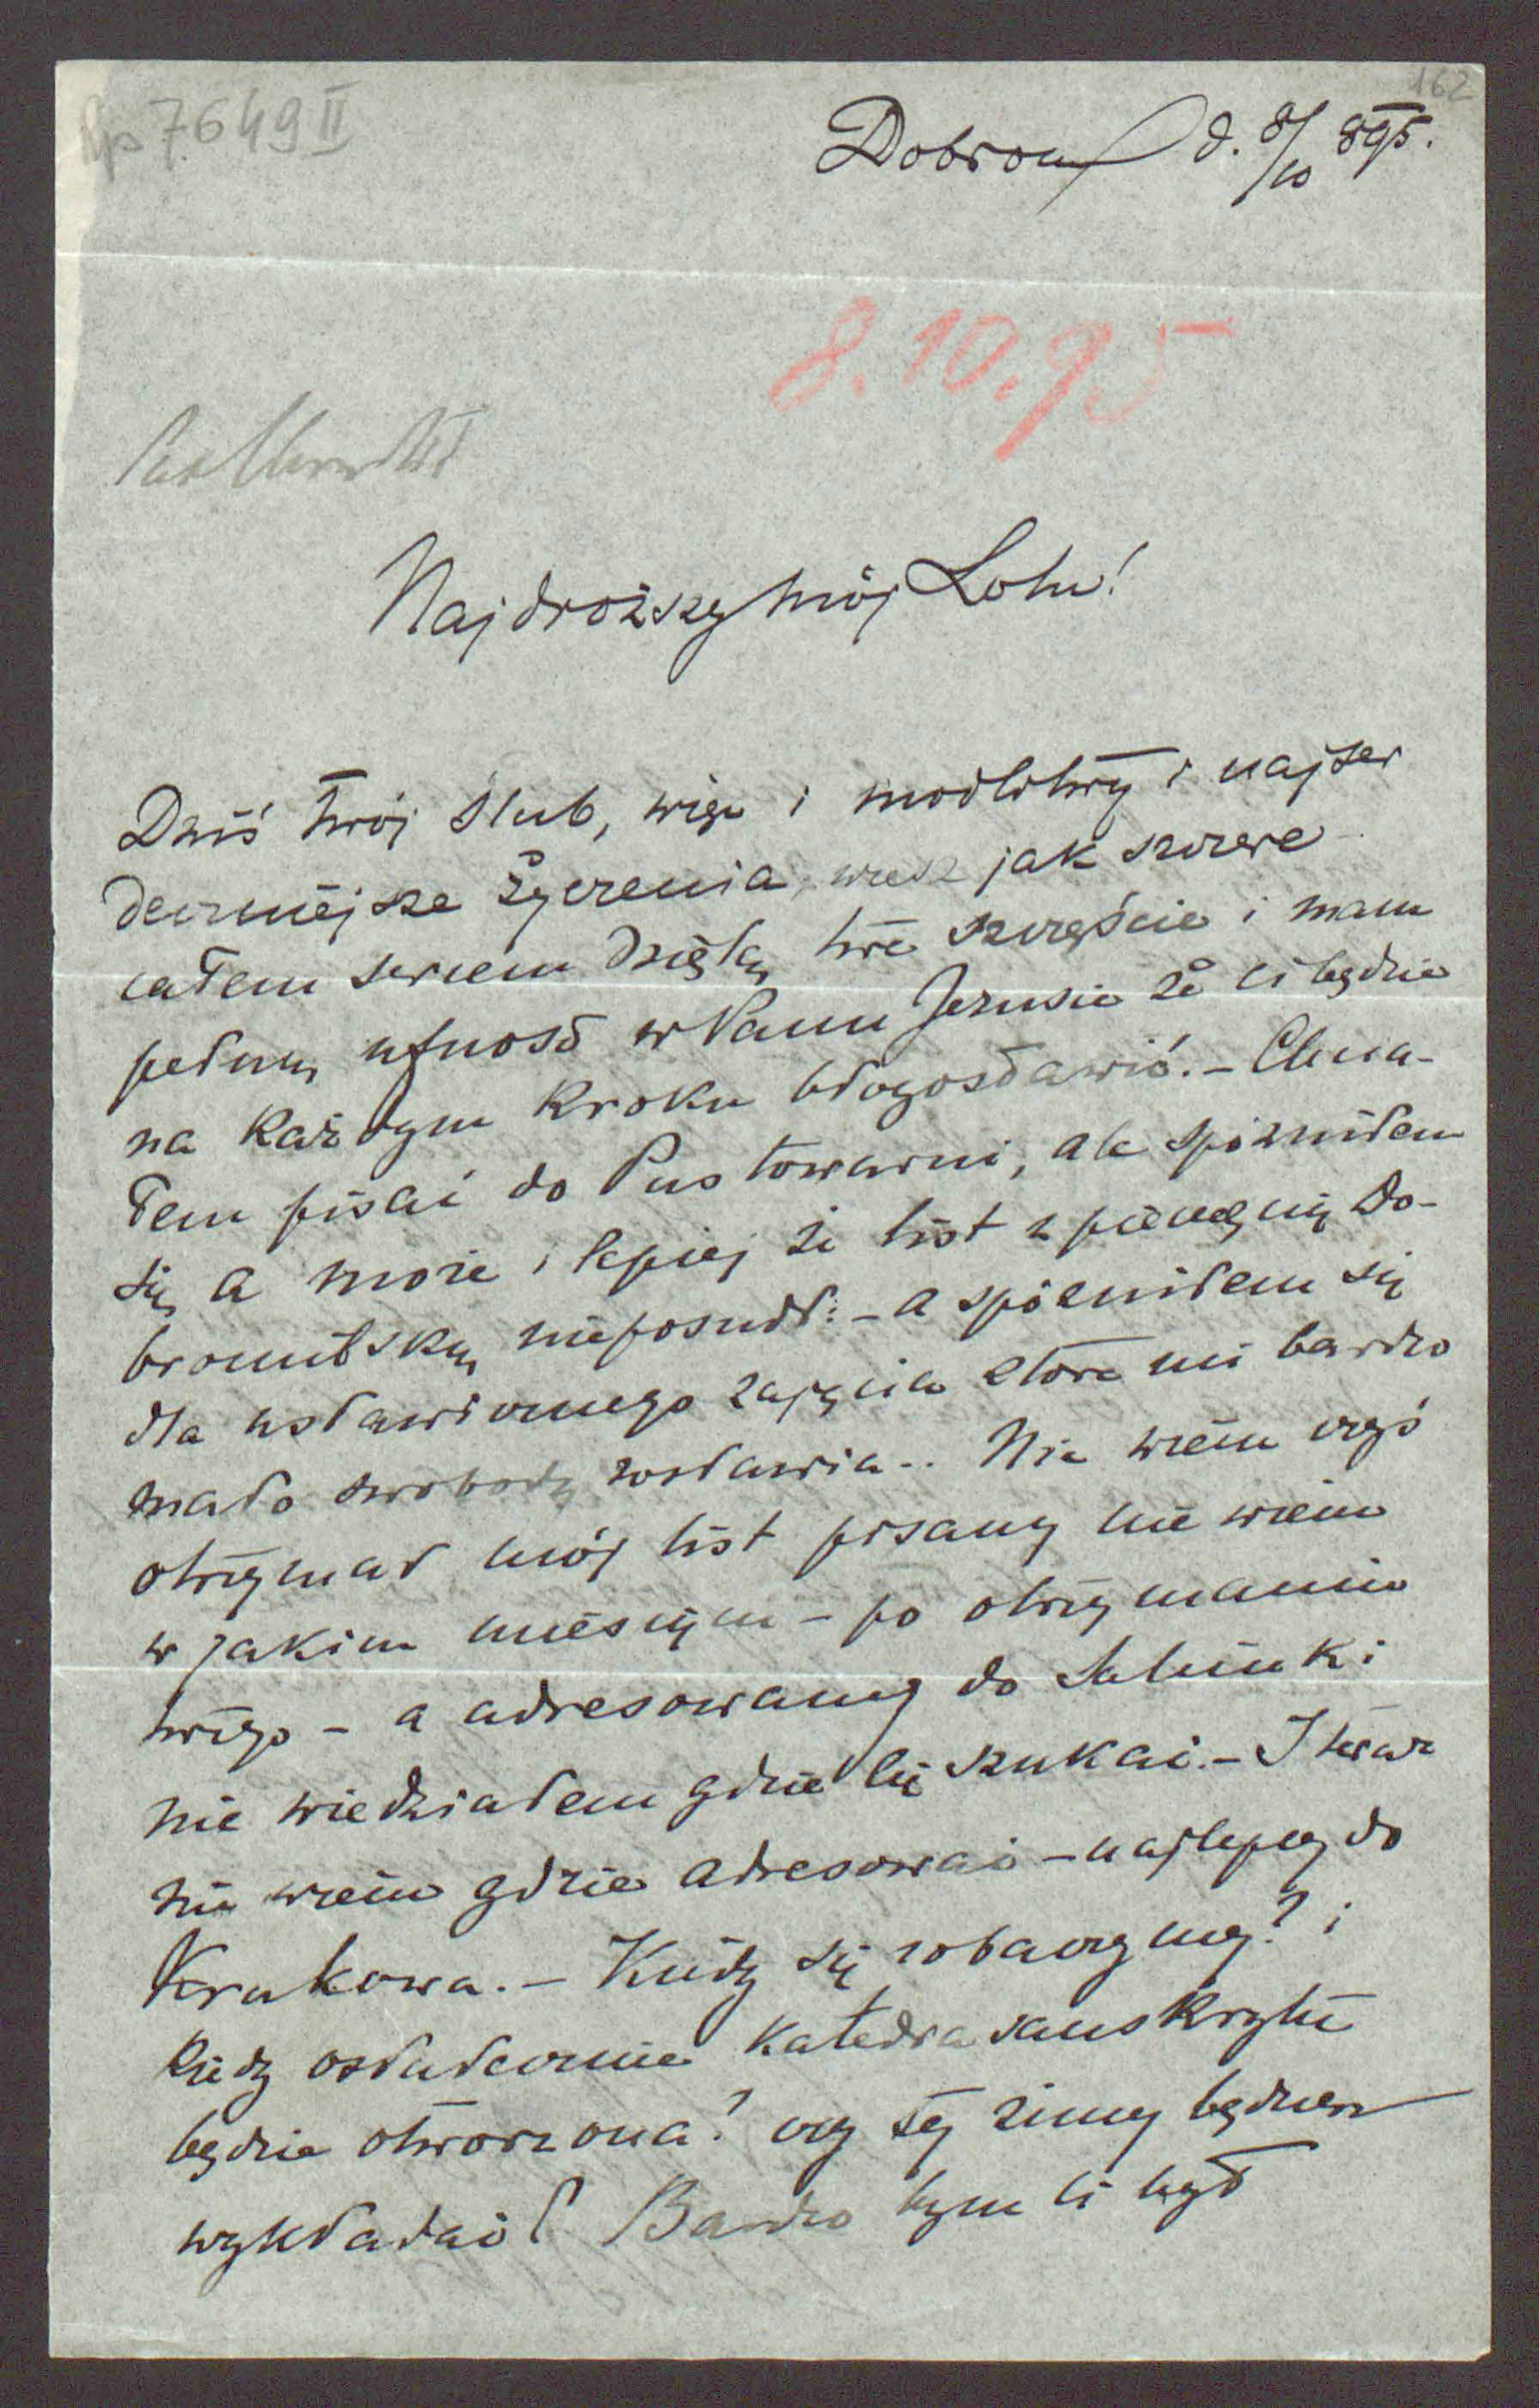 Rps 7649 II
162
Dobromil d. 8/10 895.
8.10.95
Najdroższy mój Lolu!
Dziś twój ślub, więc i modlitwy i najser
deczniejsze życzenia, wiesz jak szczere
całem sercem dzielę twe szczęście i mam
pełną ufność w Panu Jezusie że ci będzie
na każdym kroku błogosławić. – Chcia-
łem pisać do Pustowarni, ale spóźniłem
się, a może i lepiej że list z pieczęcią do-
bromilską nie poszedł: – a spóźniłem się
dla ustawicznego zajęcia które mi bardzo
mało swobody zostawia.. Nie wiem czyś
otrzymał mój list pisany nie wiem
w jakim miesiącu – po otrzymaniu
twego – a adresowany do
nie wiedziałem gdzie cię szukać. – I teraz
nie wiem gdzie adresować – najlepiej do
Krakowa. – Kiedy się zobaczymy? i
kiedy ostatecznie katedra sanskrytu
będzie otworzona? czy tej zimy będziesz
wykładać? Bardzo bym ci był